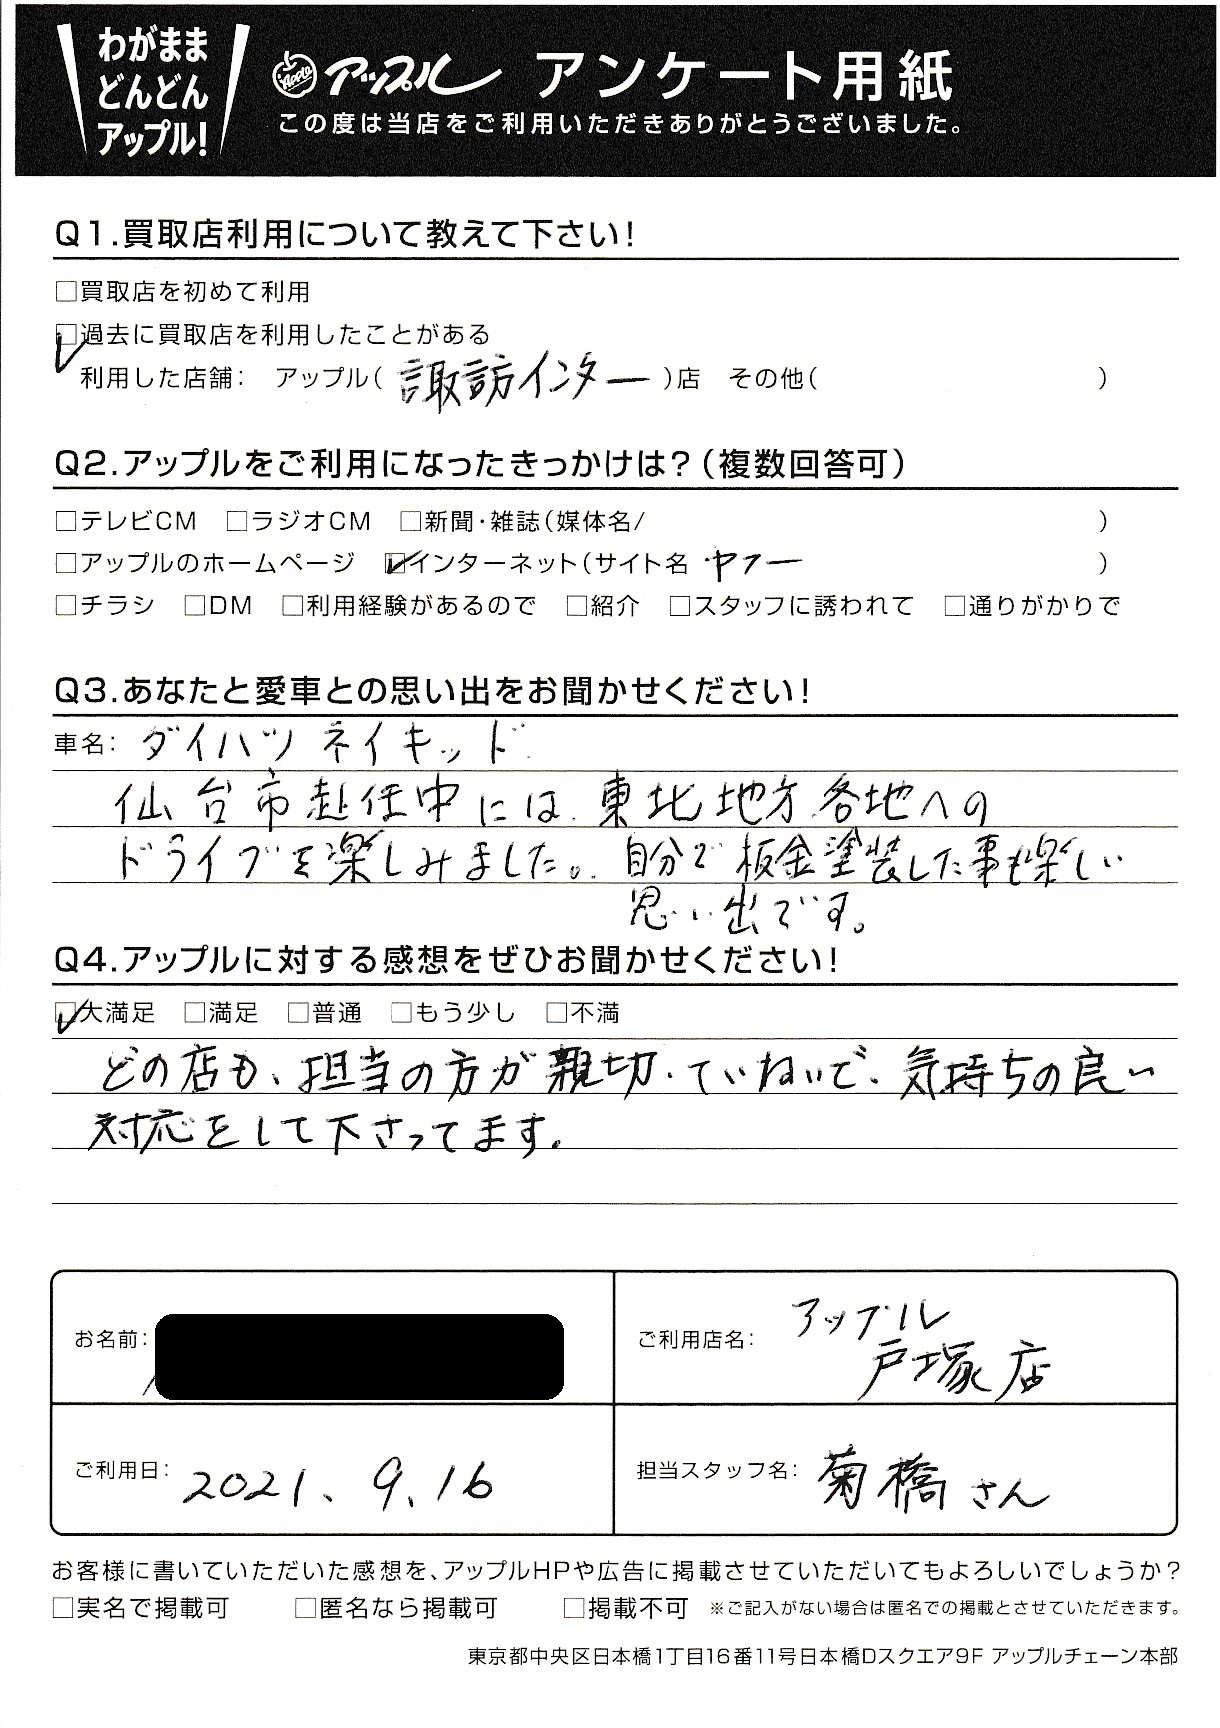 わがまま
どんどん
アップル!
Apple アップル アンケート用紙
この度は当店をご利用いただきありがとうございました。
Q1.買取店利用について教えて下さい!
□買取店を初めて利用
☑過去に買取店を利用したことがある
利用した店舗: アップル(諏訪インター)店 その他( )
Q2.アップルをご利用になったきっかけは?(複数回答可)
□テレビCM □ラジオCM □新聞・雑誌(媒体名/ )
□アップルのホームページ ☑インターネット(サイト名 ヤフー )
□チラシ □DM □利用経験があるので □紹介 □スタッフに誘われて □通りがかりで
Q3.あなたと愛車との思い出をお聞かせください!
車名: ダイハツ ネイキッド
仙台市赴任中には、東北地方各地への
ドライブを楽しみました。自分で板金塗装した事も楽しい
思い出です。
Q4.アップルに対する感想をぜひお聞かせください!
☑大満足 □満足 □普通 □もう少し □不満
どの店も、担当の方が親切・ていねいで、気持ちの良い
対応をして下さってます。
お名前:
ご利用店名: アップル
戸塚店
ご利用日: 2021、9、16
担当スタッフ名: 菊橋さん
お客様に書いていただいた感想を、アップルHPや広告に掲載させていただいてもよろしいでしょうか?
□実名で掲載可 □匿名なら掲載可 □掲載不可 ※ご記入がない場合は匿名での掲載とさせていただきます。
東京都中央区日本橋1丁目16番11号日本橋Dスクエア9F アップルチェーン本部